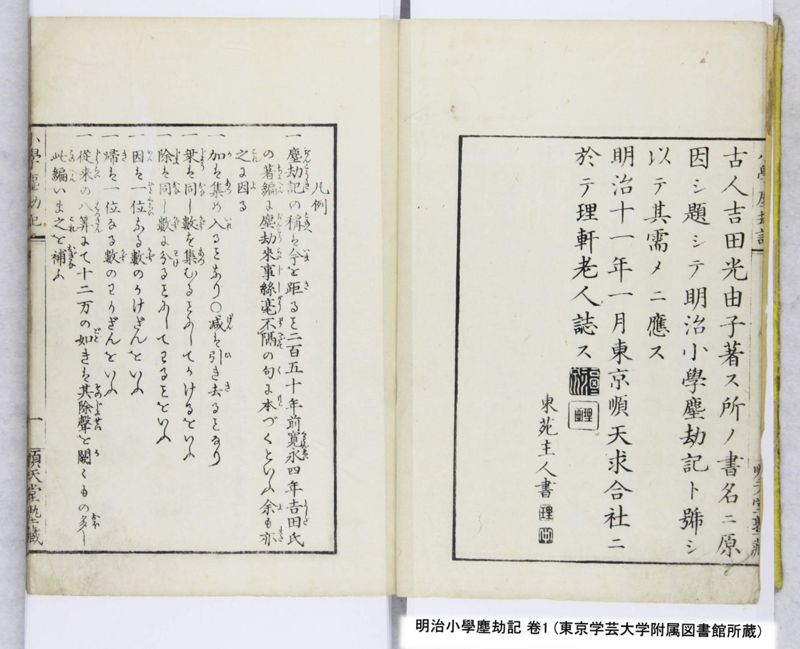 古人吉田光由子著ス所ノ書名ニ原
因シ題シテ明治小學塵劫記ト號シ
以テ其需メニ應ス
明治十一年一月東京順天求合社ニ
於テ理軒老人誌ス
東苑主人書
凡例
一 塵劫記の稱は今を距るこ二百五十年前寛永四年吉田氏
の著編に塵劫來事絲毫不隔の句に本づくといふ余も亦
之に因る
一 加は集め入るゝなり〇減は引き去るゝなり
一 乗は同し數を集むるにしてかけるといふ
一 除は同し數に分るにしてわるといふ
一 因は一位なる數のかけざんをいふ
一 歸は一位なる數のわりざんをいふ
一 從來の八算にて十二万の如きは其除聲を闕くもの多し
此編いま之を補ふ
小學塵劫記 一 順天堂塾藏
明治小學塵劫記 巻1 (東京学芸大学附属図書館所蔵)